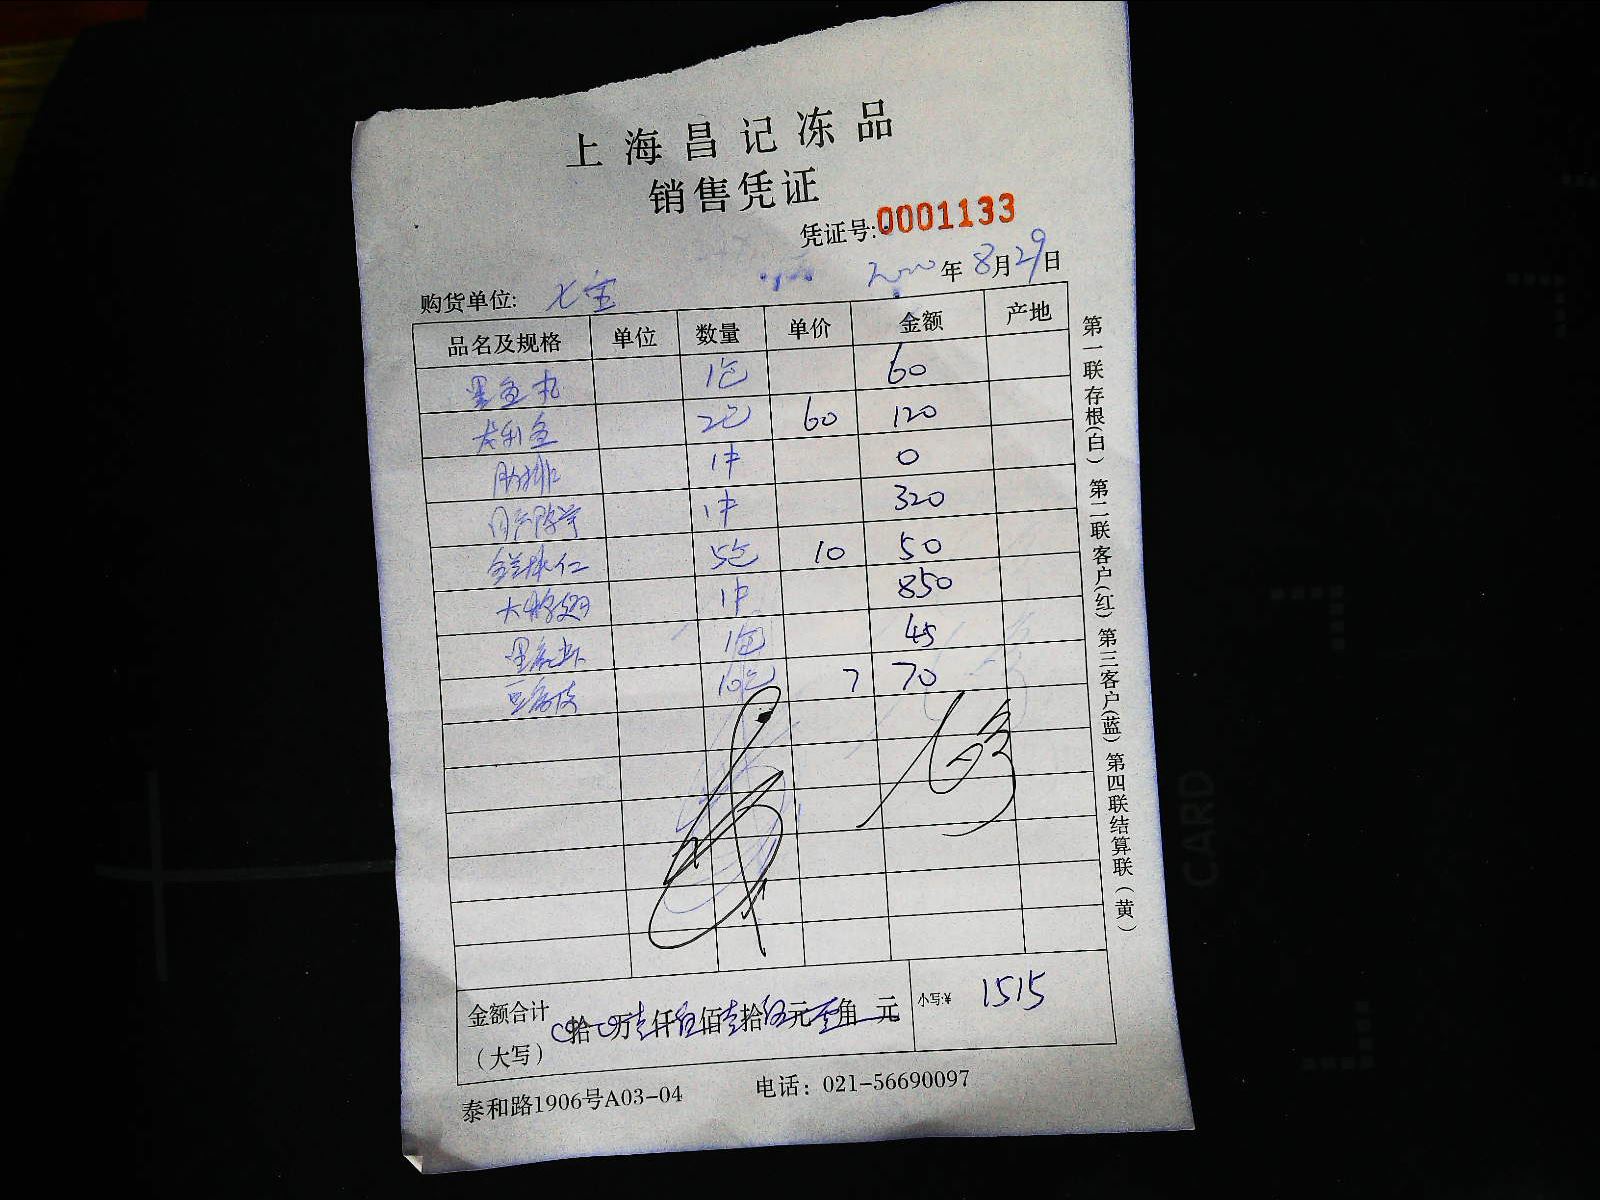 上海昌记冻品
销售凭证
凭证号:0001133
年 8月29日
购货单位: 七宝
品名及规格 单位 数量 单价 金额 产地
墨鱼丸 1包 60
龙利鱼 2包 60 120
肋排 1件 0
1件 320
5包 10 50
1件 850
1包 45
豆腐皮 10包 7 70
金额合计
(大写)
拾 万壹仟伍佰壹拾伍元 角 元
小写:¥ 1515
泰和路1906号A03-04 电话: 021-56690097
第一联存根(白) 第二联客户(红) 第三客户(蓝) 第四联结算联(黄)
CARD